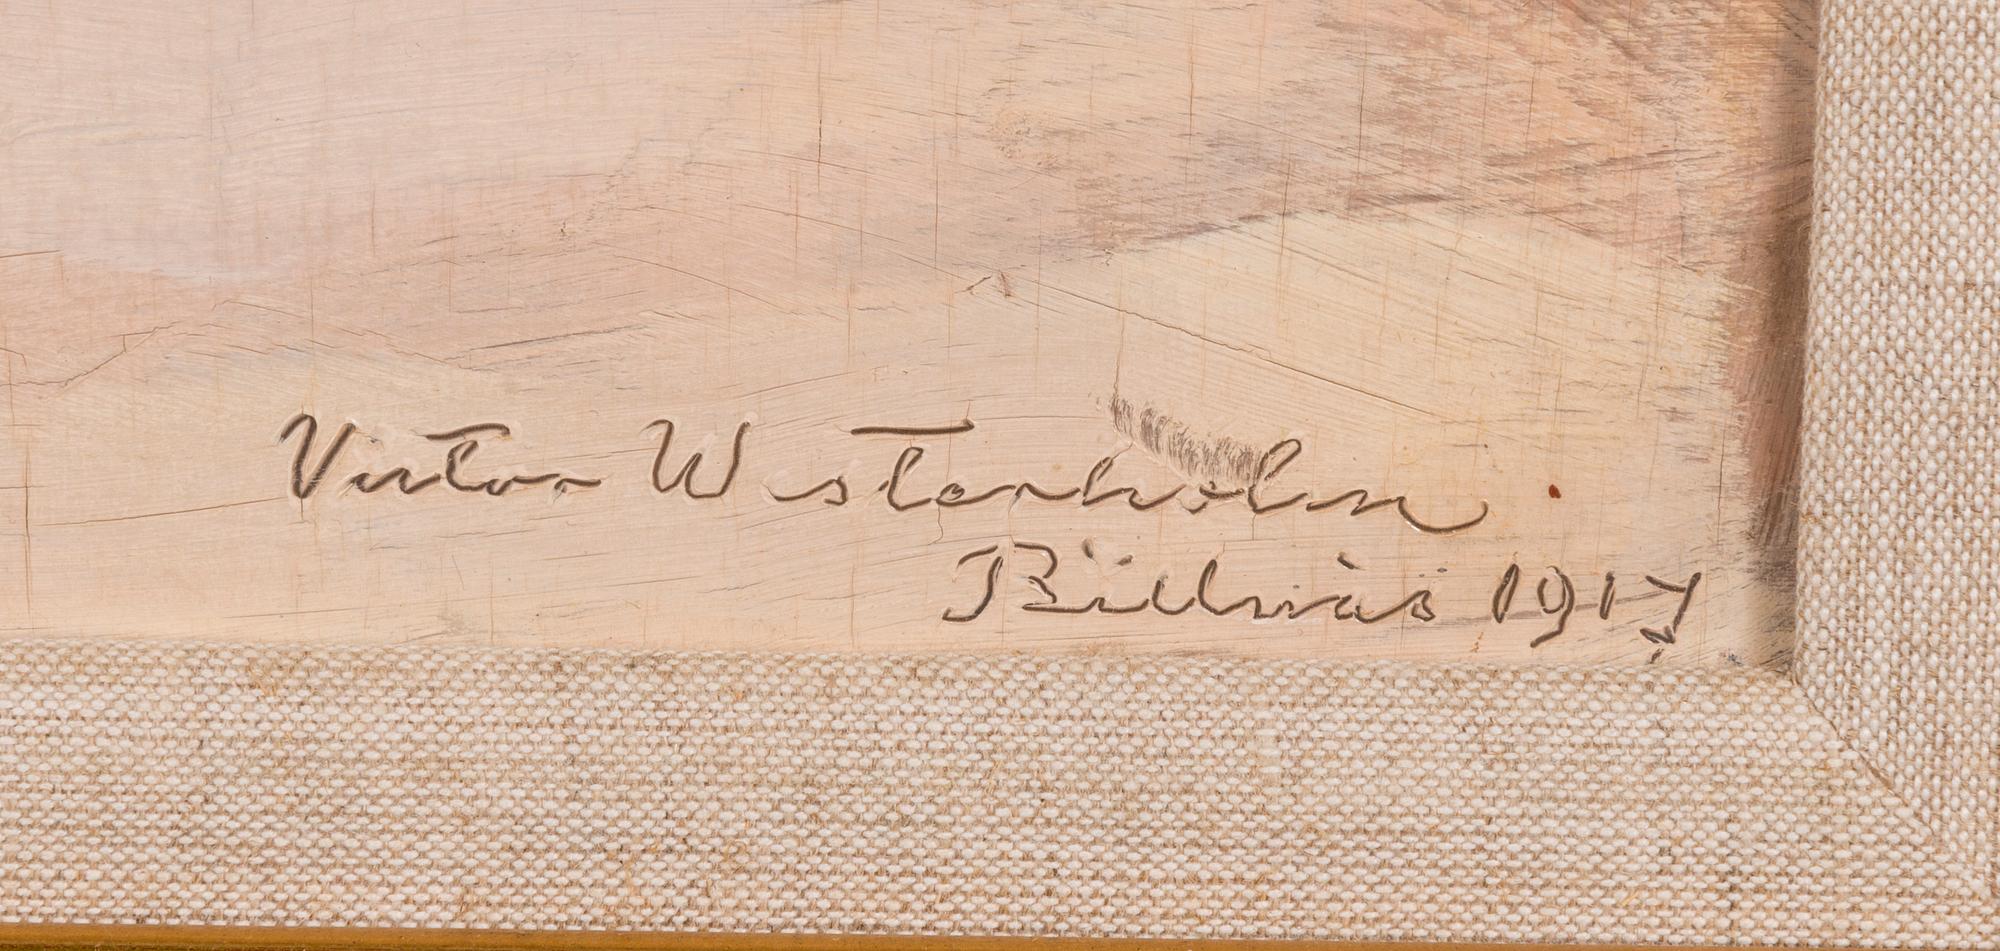 Victor Westerholm
Billnäs 1917